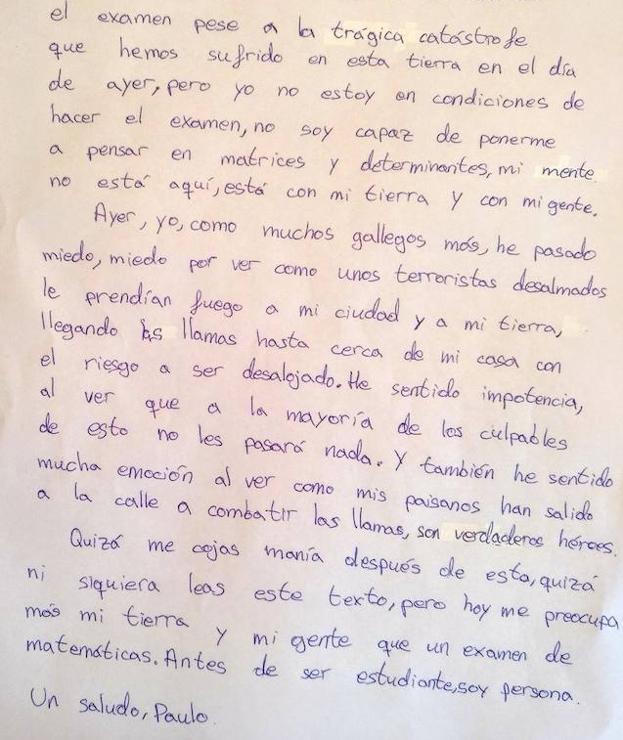 el examen pese a la trágica catástrofe
que hemos sufrido en esta tierra en el día
de ayer, pero yo no estoy en condiciones de
hacer el examen, no soy capaz de ponerme
a pensar en matrices y determinantes, mi mente
no está aquí, está con mi tierra y con mi gente.
Ayer, yo, como muchos gallegos más, he pasado
miedo, miedo por ver como unos terroristas desalmados
le prendían fuego a mi ciudad y a mi tierra,
llegando las llamas hasta cerca de mi casa con
el riesgo a ser desalojado. He sentido impotencia,
al ver que a la mayoría de los culpables
de esto no les pasará nada. Y también he sentido
mucha emoción al ver como mis paisanos han salido
a la calle a combatir las llamas, son verdaderos héroes.
Quizá me cojas manía después de esto, quizá
ni siquiera leas este texto, pero hoy me preocupa
más mi tierra y mi gente que un examen de
matemáticas. Antes de ser estudiante, soy persona.
Un saludo, Paulo.